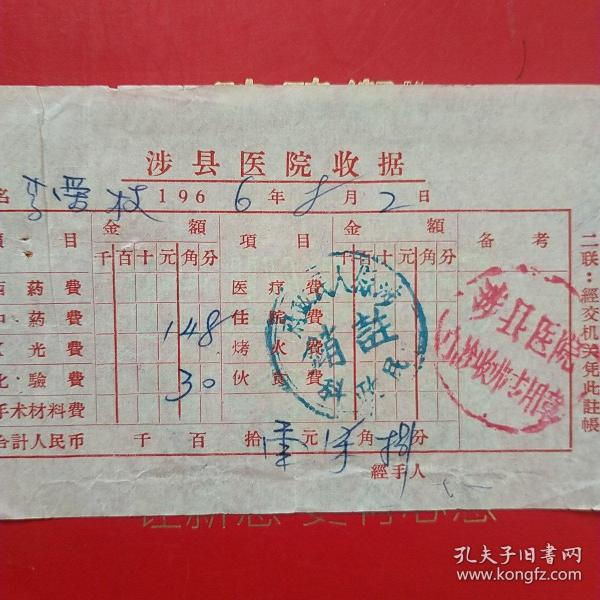 涉县医院收据
名 李爱枝 1966年8月2日
項目 金額 項目 金額 備考
千百十元角分 千百十元角分
西药費 医疗費
中药費 148 住院費
X光費 烤火費
化驗費 30 伙食費
手术材料費
合計人民币 千 百 拾 元 角 捌 分
經手人
二联：經交机关凭此註帳
註銷
民政科
涉县医院
孔夫子旧书网
www.kongfz.com